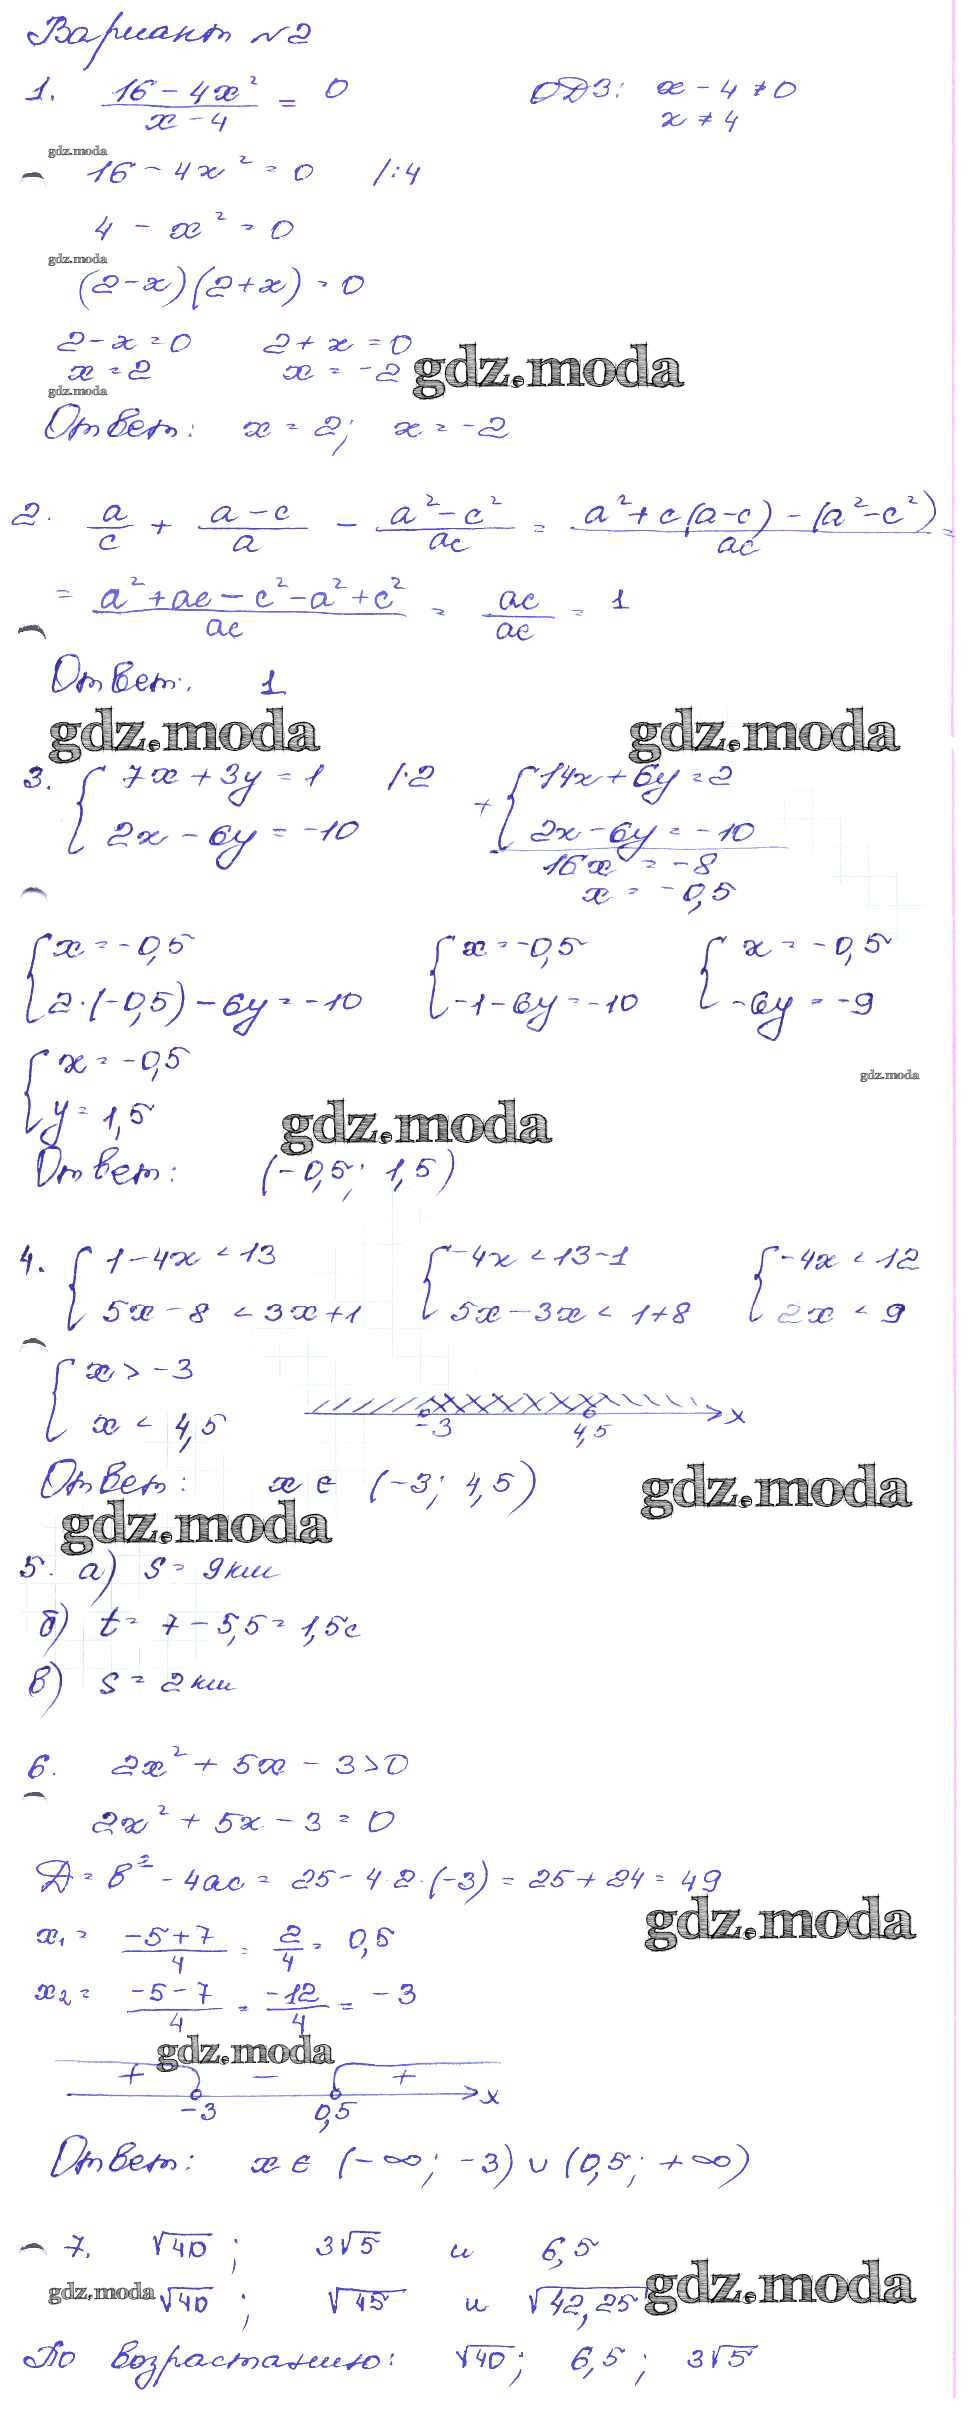 Вариант №2
1. (16 - 4x²)/(x - 4) = 0 ОДЗ: x - 4 ≠ 0
x ≠ 4
gdz.moda
16 - 4x² = 0 /:4
4 - x² = 0
gdz.moda
(2-x)(2+x) = 0
2-x=0 2+x=0
x=2 x=-2
gdz.moda
gdz.moda
Ответ: x=2; x=-2
2. a/c + (a-c)/a - (a²-c²)/ac = (a²+c(a-c)-(a²-c²))/ac =
= (a²+ac-c²-a²+c²)/ac = ac/ac = 1
Ответ. 1
gdz.moda gdz.moda
3. { 7x+3y=1 /·2 + { 14x+6y=2
{ 2x-6y=-10 { 2x-6y=-10
16x=-8
x=-0,5
{ x=-0,5 { x=-0,5 { x=-0,5
{ 2·(-0,5)-6y=-10 { -1-6y=-10 { -6y=-9
{ x=-0,5
gdz.moda
{ y=1,5
gdz.moda
Ответ: (-0,5; 1,5)
4. { 1-4x<13 { -4x<13-1 { -4x<12
{ 5x-8<3x+1 { 5x-3x<1+8 { 2x<9
{ x>-3
{ x<4,5
-3 4,5 x
Ответ: x∈(-3; 4,5)
gdz.moda
gdz.moda
5. а) S=9км
б) t=7-5,5=1,5с
в) S=2км
6. 2x²+5x-3>0
2x²+5x-3=0
Д=в²-4ac=25-4·2·(-3)=25+24=49
gdz.moda
x₁=(-5+7)/4=2/4=0,5
x₂=(-5-7)/4=-12/4=-3
gdz.moda
+ - +
-3 0,5 x
Ответ: x∈(-∞; -3)∪(0,5; +∞)
7. √40; 3√5 и 6,5
gdz.moda √40; √45 и √42,25 gdz.moda
По возрастанию: √40; 6,5; 3√5